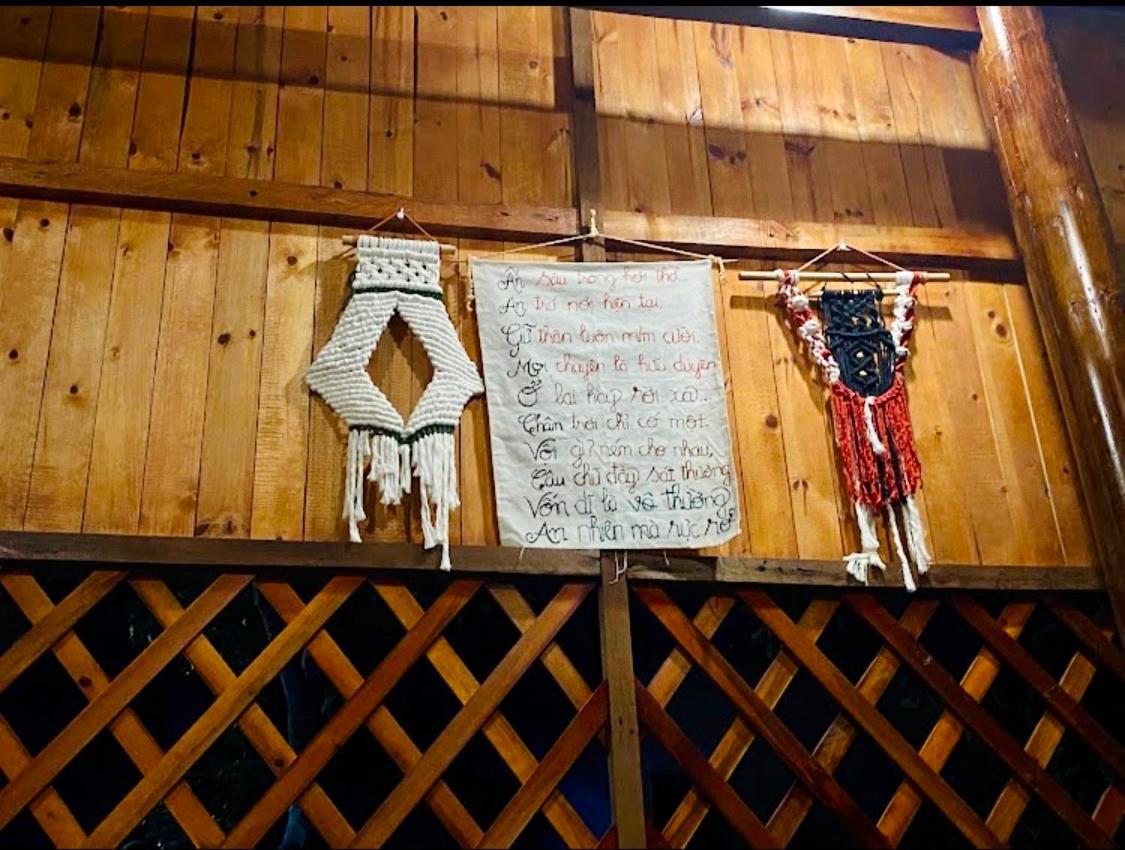 Ẩn sâu trong hơi thở
An trú nơi hiện tại,
Giữ thân luôn mỉm cười.
Mọi chuyện là hữu duyên
Ở lại hay rời xa..
Chân trời chỉ có một.
Với gì? ném cho nhau,
Câu chữ đầy sát thương
Vốn dĩ là vô thường
An nhiên mà rực rỡ